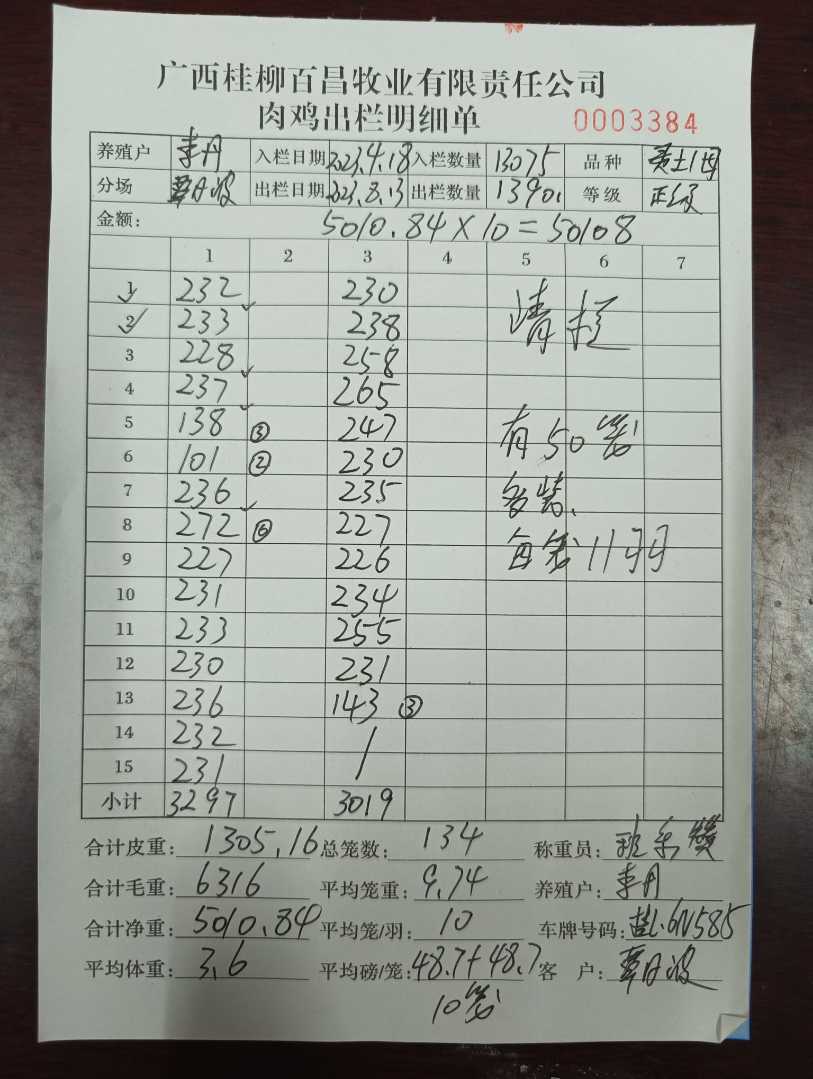 广西桂柳百昌牧业有限责任公司
肉鸡出栏明细单 0003384
养殖户 李丹 入栏日期 2023.4.18 入栏数量 13075 品种
分场 出栏日期 2023.8.13 出栏数量 1390 等级 正级
金额: 5010.84×10=50108
1 2 3 4 5 6 7
1 232 230
2 233 238 清栏
3 228 258
4 237 265
5 138 ③ 247 有50笼
6 101 ② 230
7 236 235 多装、
8 272 ⑥ 227
9 227 226 每笼11羽
10 231 234
11 233 255
12 230 231
13 236 143 ③
14 232 /
15 231
小计 3297 3019
合计皮重: 1305.16 总笼数: 134 称重员:
合计毛重: 6316 平均笼重: 9.74 养殖户: 李丹
合计净重: 5010.84 平均笼/羽: 10 车牌号码: 6N585
平均体重: 3.6 平均磅/笼: 48.7+48.7 客 户:
10笼